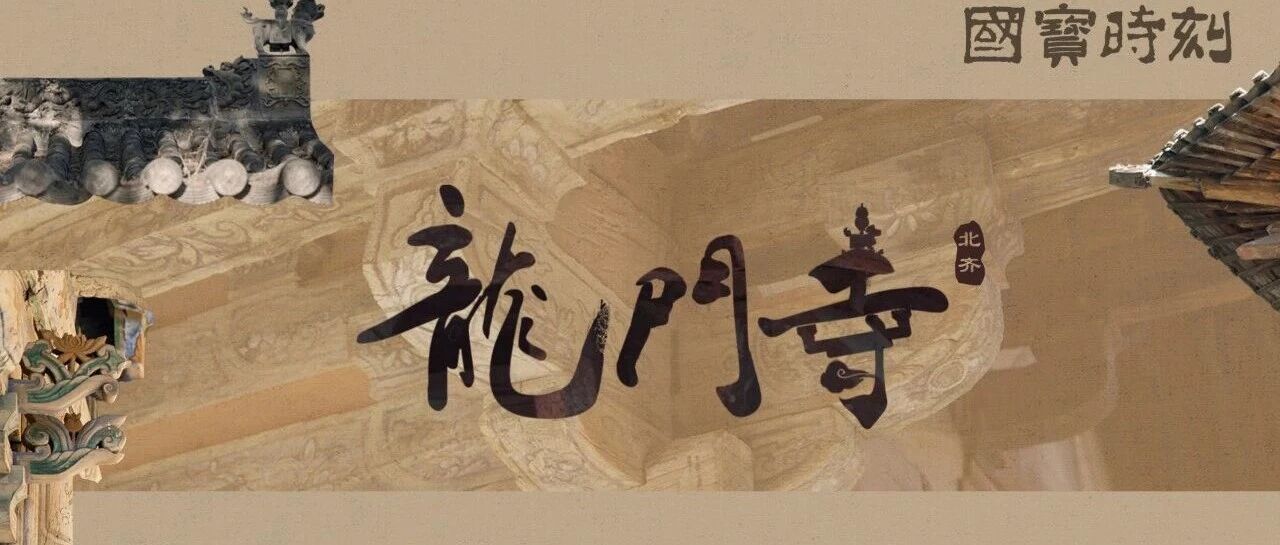 國寶時刻
龍門寺
北齐